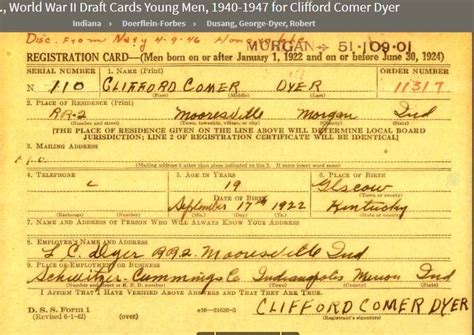 ., World War II Draft Cards Young Men, 1940-1947 for Clifford Comer Dyer
Indiana > Doerflein-Forbes > Dusang, George-Dyer, Robert
Disc. From Navy 4-9-46 Honorable
MORGAN 51-109-01
REGISTRATION CARD—(Men born on or after January 1, 1922 and on or before June 30, 1924)
SERIAL NUMBER 1. NAME (Print) ORDER NUMBER
N 110 CLIFFORD COMER DYER 11317
(First) (Middle) (Last)
2. PLACE OF RESIDENCE (Print)
RR-2 Mooresville Morgan Ind
(Number and street) (Town, township, village, or city) (County) (State)
[THE PLACE OF RESIDENCE GIVEN ON THE LINE ABOVE WILL DETERMINE LOCAL BOARD
JURISDICTION; LINE 2 OF REGISTRATION CERTIFICATE WILL BE IDENTICAL]
3. MAILING ADDRESS
[Mailing address if other than place indicated on line 2. If same insert word same]
4. TELEPHONE 5. AGE IN YEARS 6. PLACE OF BIRTH
19 Glascow
DATE OF BIRTH (Town or county)
September 17th 1922 Kentucky
(Exchange) (Number) (Mo.) (Day) (Yr.) (State or country)
7. NAME AND ADDRESS OF PERSON WHO WILL ALWAYS KNOW YOUR ADDRESS
8. EMPLOYER'S NAME AND ADDRESS
L C. Dyer RR2. Mooresville Ind
9. PLACE OF EMPLOYMENT OR BUSINESS
Schwitzer Cummings Co Indianapolis Marion Ind
I AFFIRM THAT I HAVE VERIFIED ABOVE ANSWERS AND THAT THEY ARE TRUE.
D. S. S. Form 1
(Revised 6-1-42) (over) CLIFFORD COMER DYER
(Registrant's signature)